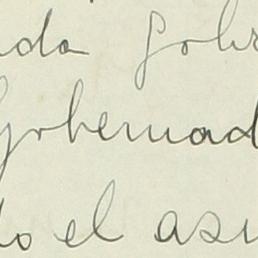 nda sobr
Gobernad
do el asu